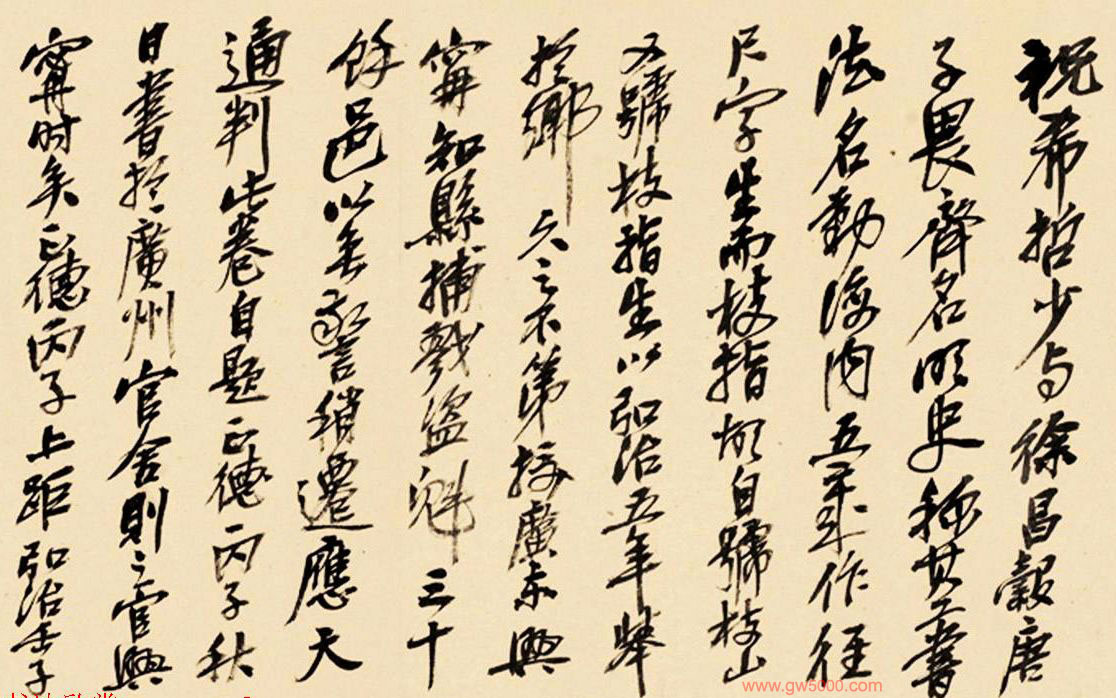 祝希哲少与徐昌穀唐
子畏齊名明史稱其工書
法名動海内五年來作徑
尺字生而枝指故自號枝山
又號枝指生以弘治五年舉
於鄉久之不第授廣東興
寧知縣捕戮盜魁三十
餘邑以無警稍遷應天
通判此卷自題正德丙子秋
日書於廣州官舍則之官興
寧時矣正德丙子上距弘治壬子
www.gw5000.com